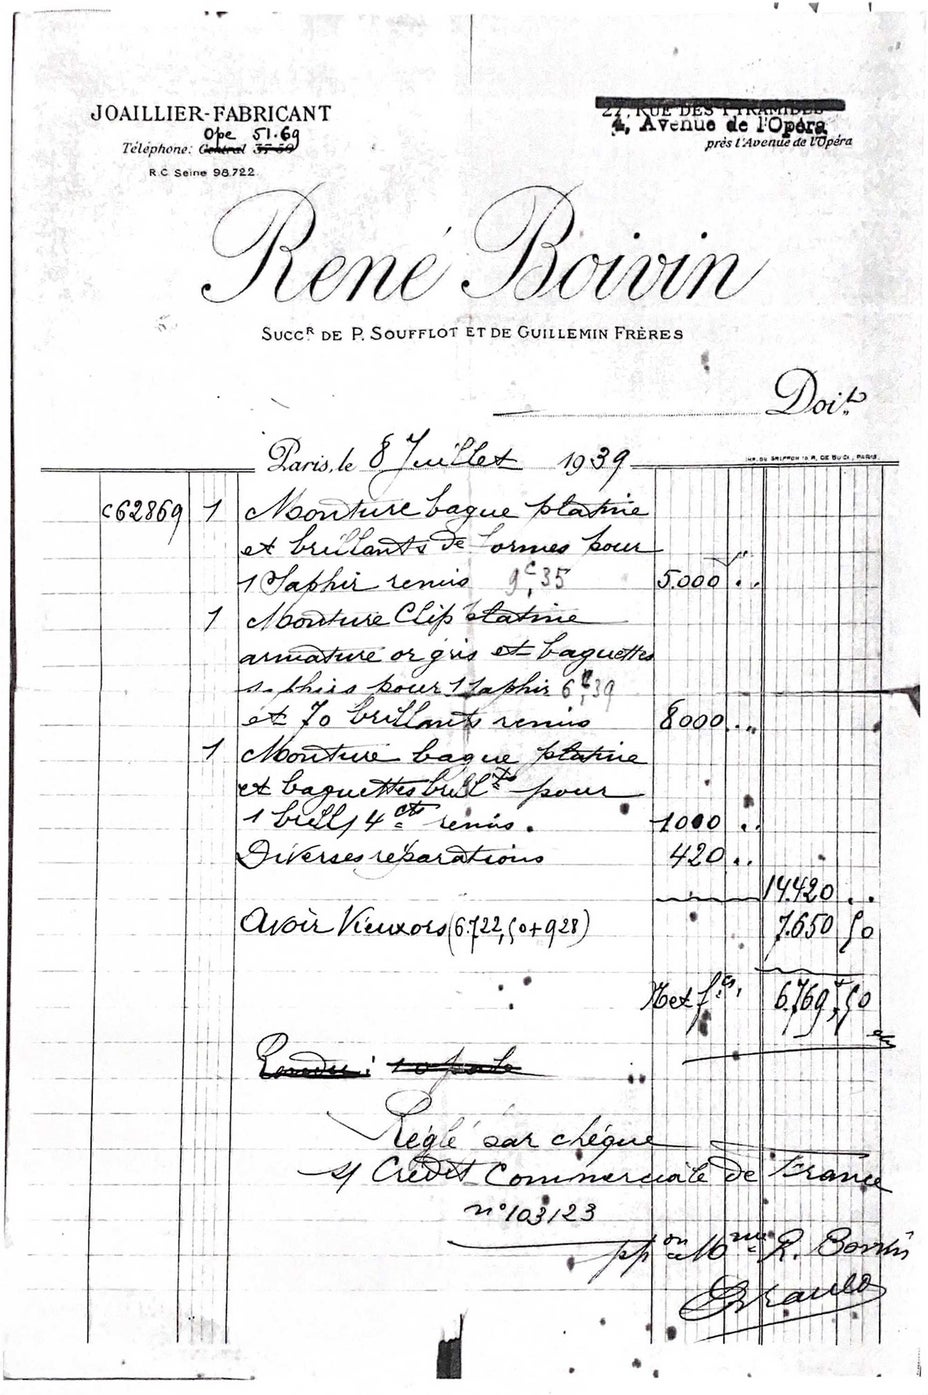 JOAILLIER-FABRICANT
Ope 51.69
Téléphone: Central 35-59
R.C. Seine 98.722
27, RUE DES PYRAMIDES
4, Avenue de l'Opéra
près l'Avenue de l'Opéra
René Boivin
SUCCR DE P. SOUFFLOT ET DE GUILLEMIN FRÈRES
Doit
Paris, le 8 Juillet 1939
C62869 1 Monture bague platine
et brillants de formes pour
1 Saphir remis 9c,35 5.000 ..
1 Monture Clip platine
armature or gris et baguettes
saphirs pour 1 saphir 6c,39
et 70 brillants remis 8000 ..
1 Monture bague platine
et baguettes brillts pour
1 brill 4 cts remis. 1000 ..
Diverses réparations 420 ..
14.420 ..
Avoir Vieux ors (6.722,50+928) 7.650 50
Net fcs. 6.769,50
Réglé par chèque
s/ Crédit Commerciale de France
n° 103123
ppon Mme R. Boivin